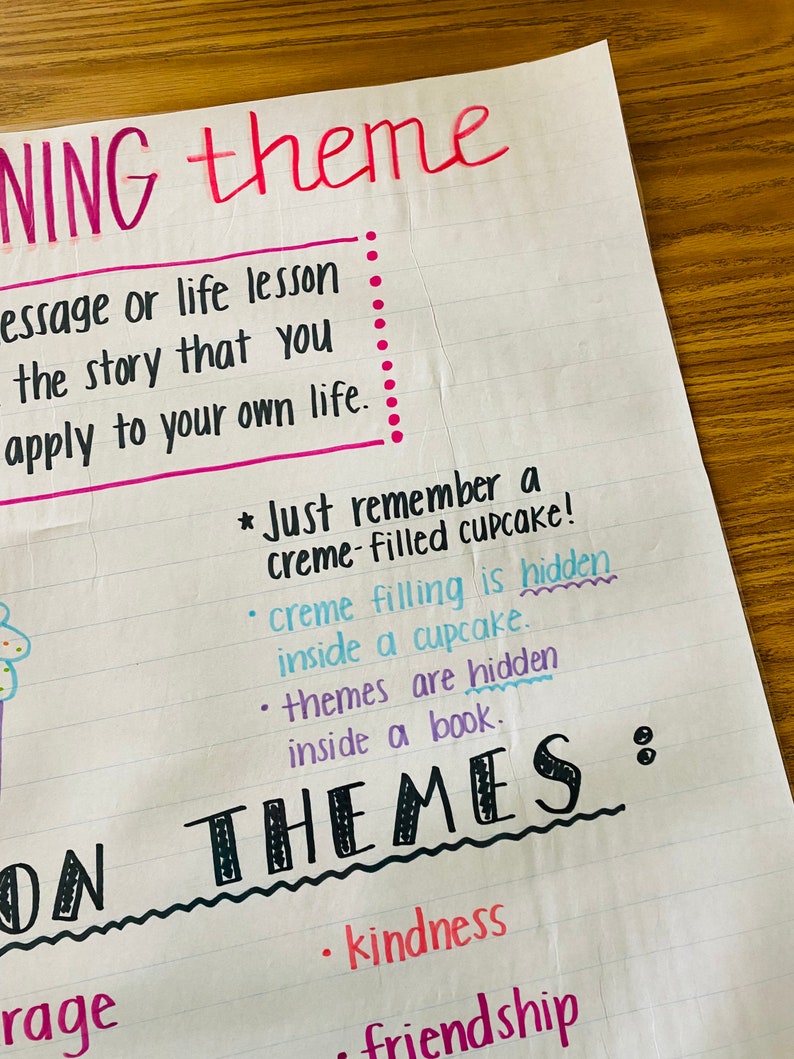 NING theme
essage or life lesson
the story that you
apply to your own life.
* Just remember a
creme-filled cupcake!
• creme filling is hidden
inside a cupcake.
• themes are hidden
inside a book.
ON THEMES:
• kindness
rage
• friendship